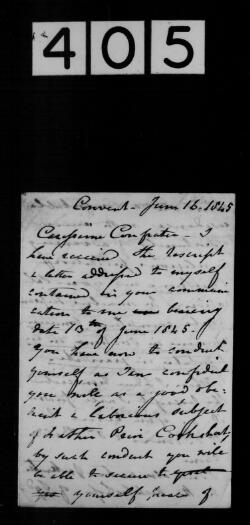 405
Convent - June 16. 1845
Carissime Confrater - I
have received the rescript
& letter addressed to myself
contained in your communi
cation to me bearing
date 13th of June 1845.
You have now to conduct
yourself as I am confident
you will as a good obe-
dient & laborious subject
of Father Prior
by such conduct you will
be able to secure to
yourself peace of